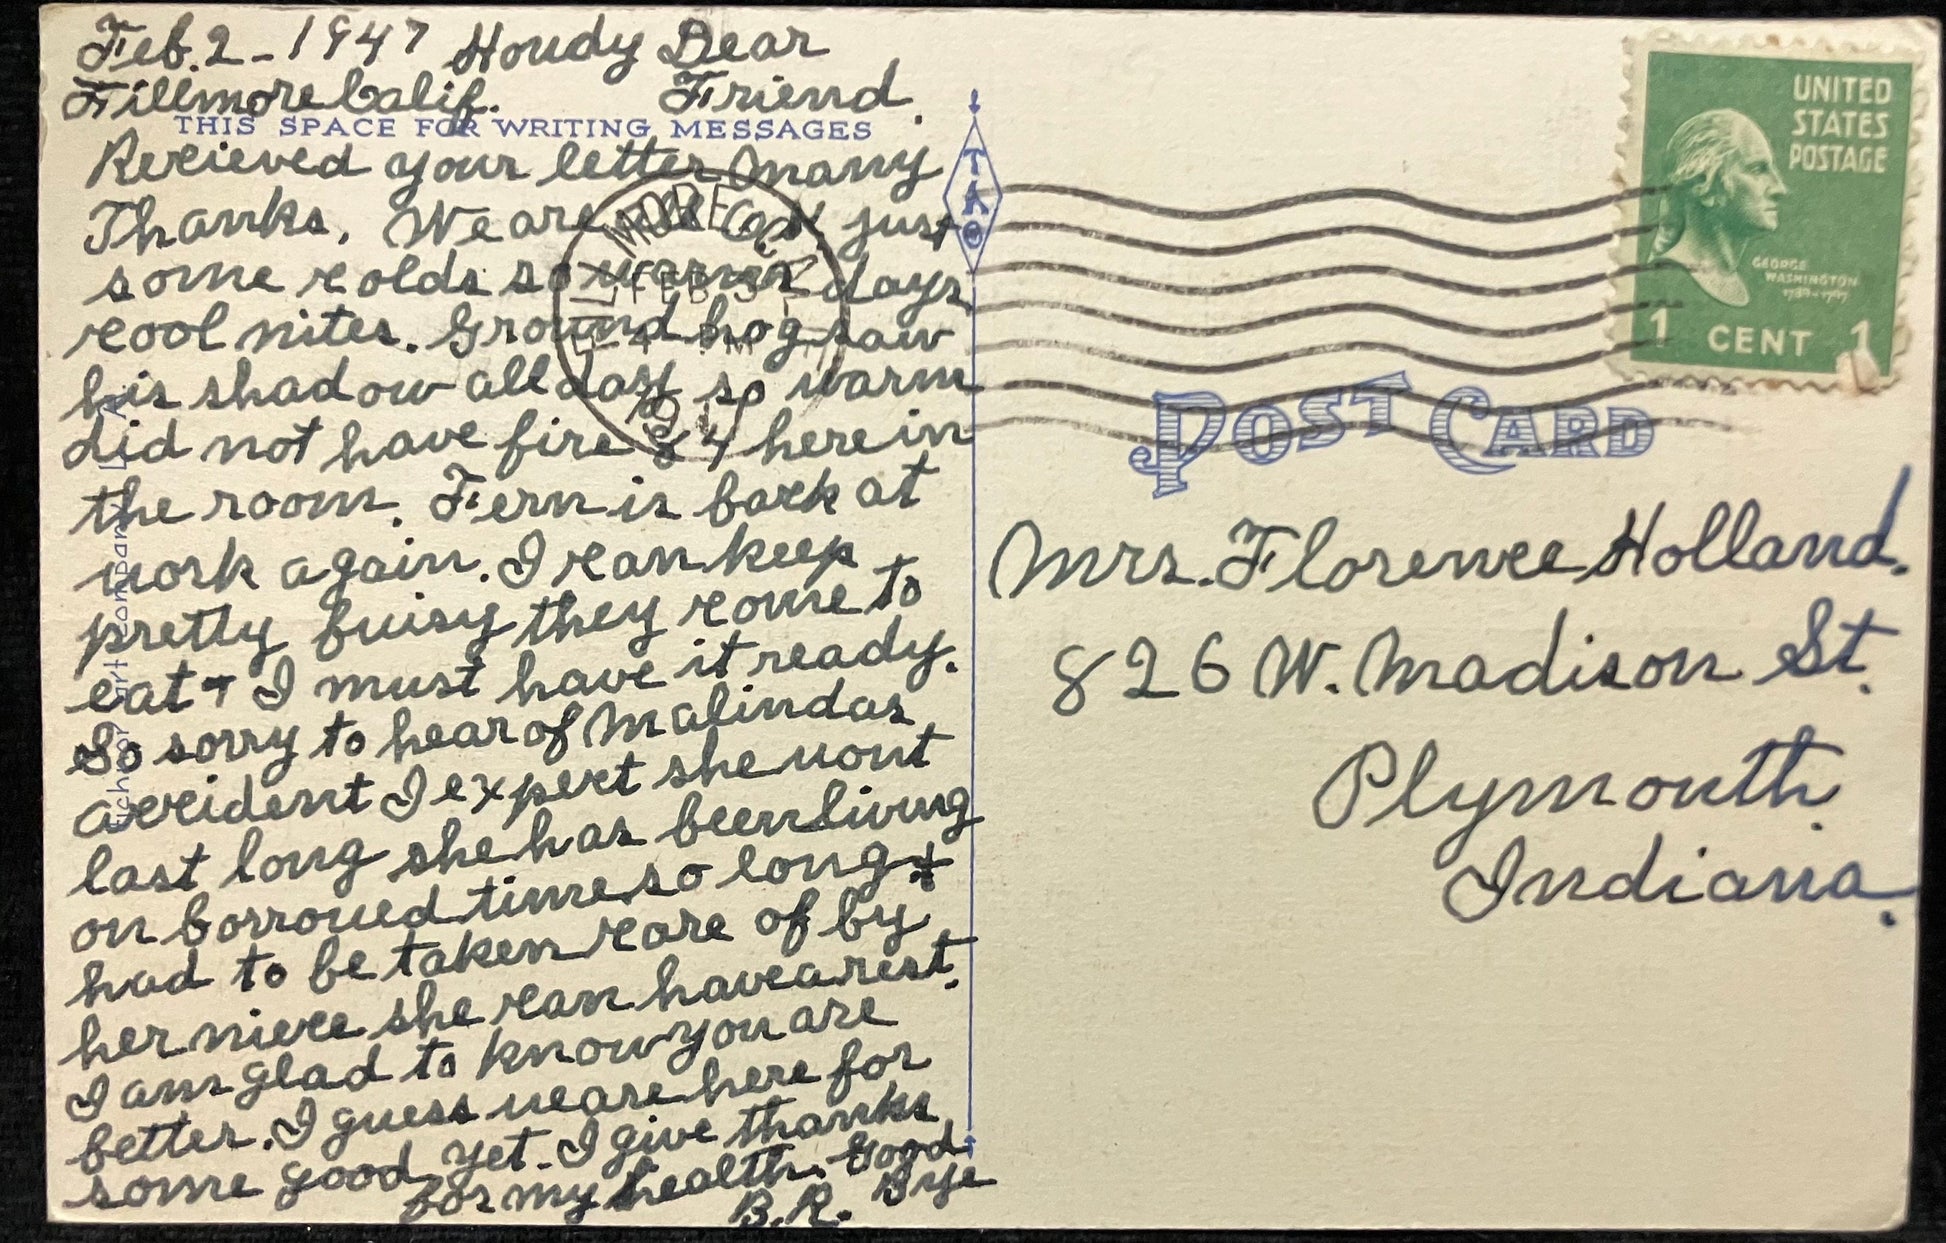 Feb. 2 - 1947 Howdy Dear
Fillmore Calif. Friend.
THIS SPACE FOR WRITING MESSAGES
Recieved your letter many
Thanks. We are all O.K. just
some colds so warm days
cool nites. Ground hog saw
his shadow all day so warm
did not have fire 84 here in
the room. Fern is back at
work again. I can keep
pretty buisy they come to
eat + I must have it ready.
So sorry to hear of Malindas
accident I expect she wont
last long she has been living
on borrowed time so long +
had to be taken care of by
her niece she can have a rest.
I am glad to know you are
better. I guess we are here for
some good yet. I give thanks
for my health. Good
B. R. Bye
FILLMORE
FEB 3
PM
194
Art Company, L. A.
TAO
UNITED
STATES
POSTAGE
GEORGE
WASHINGTON
1789-1797
1 CENT 1
POST CARD
Mrs. Florence Holland.
826 W. Madison St.
Plymouth
Indiana.